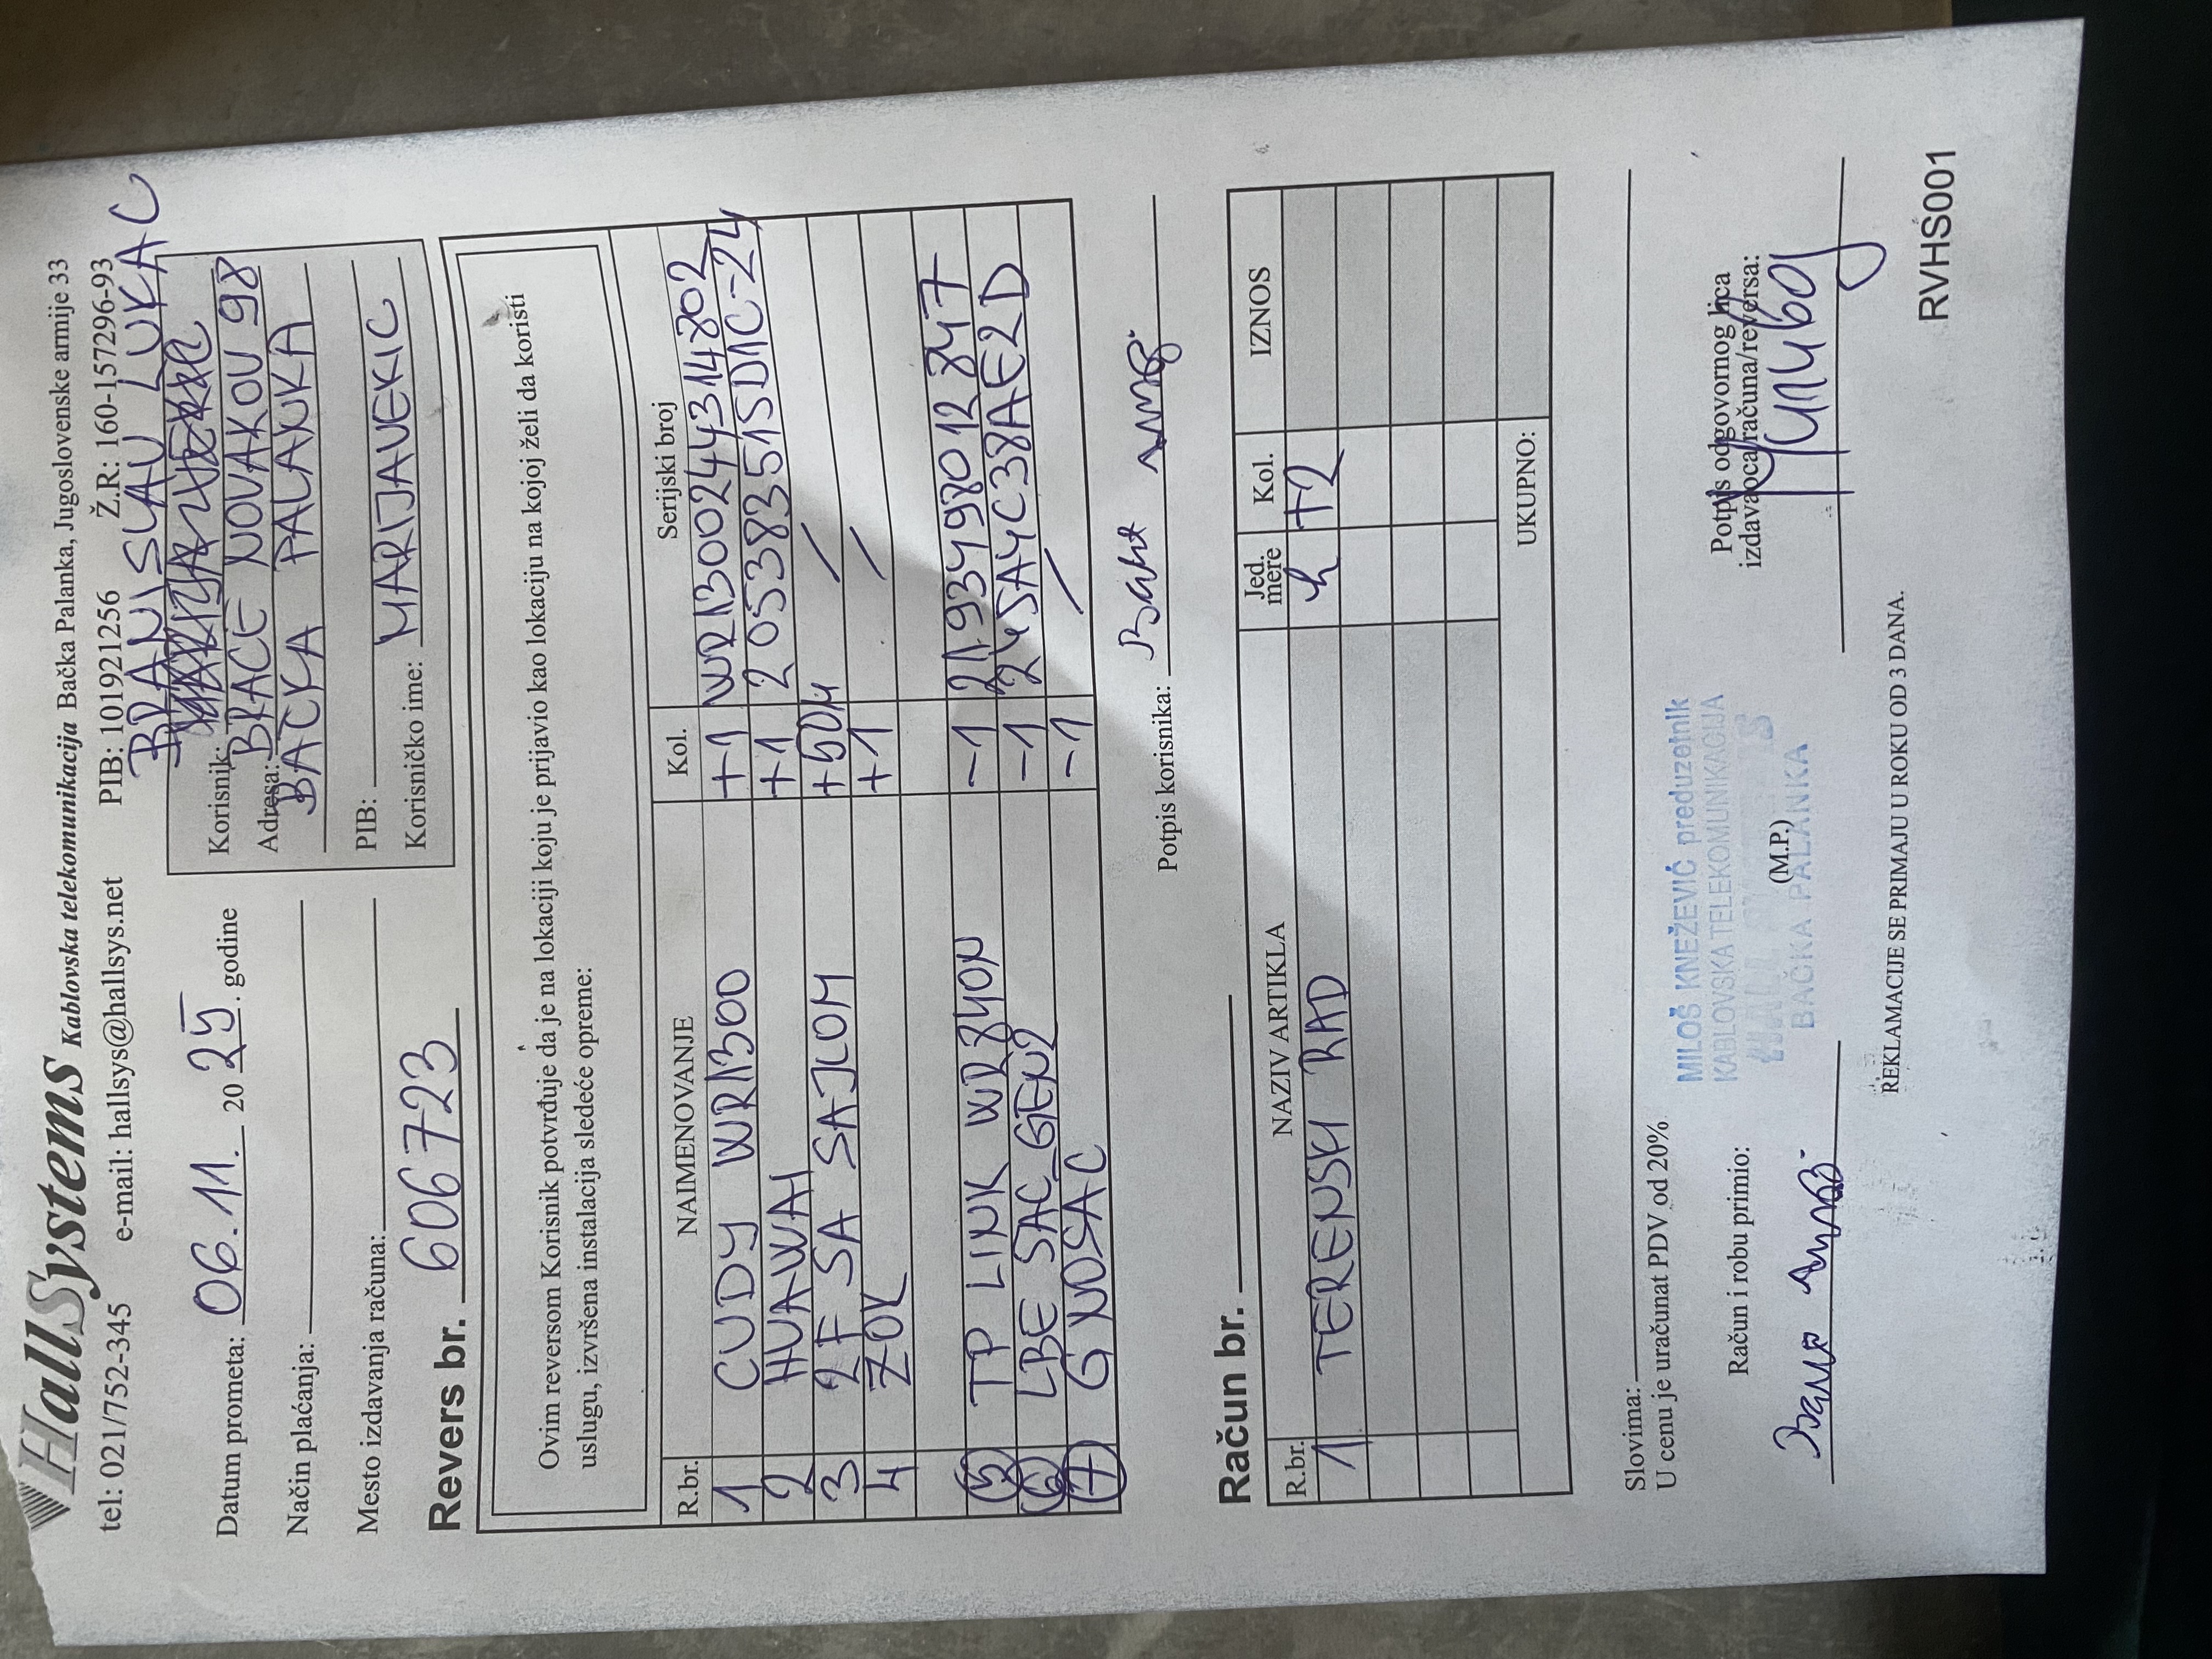 HallSystems Kablovska telekomunikacija Bačka Palanka, Jugoslovenske armije 33
tel: 021/752-345 e-mail: hallsys@hallsys.net PIB: 101921256 Ž.R: 160-157296-93
BRANISLAV LUKAC
Datum prometa: 06.11. 20 25. godine
Način plaćanja:
Mesto izdavanja računa:
Korisnik:
Adresa: BRACE NOVAKOV 98
BACKA PALANKA
PIB:
Korisničko ime: MARIJAVEKIC
Revers br. 606723
Ovim reversom Korisnik potvrđuje da je na lokaciji koju je prijavio kao lokaciju na kojoj želi da koristi
uslugu, izvršena instalacija sledeće opreme:
R.br. NAIMENOVANJE Kol. Serijski broj
1 CUDY WR1300 +1 WR1300244314802
2 HUAWAI +1 2053383515D1C-24
3 2F SA SAJLOM +50M /
4 ZOK +1 /
5 TP LINK WR840N -1 2193498012847
6 LBE 5AC_GEN2 -1 245A4C38AE2D
7 G NOSAC -1 /
Potpis korisnika:
Račun br.
R.br. NAZIV ARTIKLA Jed. mere Kol. IZNOS
1 TERENSKI RAD h +2
UKUPNO:
Slovima:
U cenu je uračunat PDV od 20%
Račun i robu primio:
MILOŠ KNEŽEVIĆ preduzetnik
KABLOVSKA TELEKOMUNIKACIJA
(M.P.)
BAČKA PALANKA
Potpis odgovornog lica
izdavaoca računa/reversa:
REKLAMACIJE SE PRIMAJU U ROKU OD 3 DANA.
RVHS001